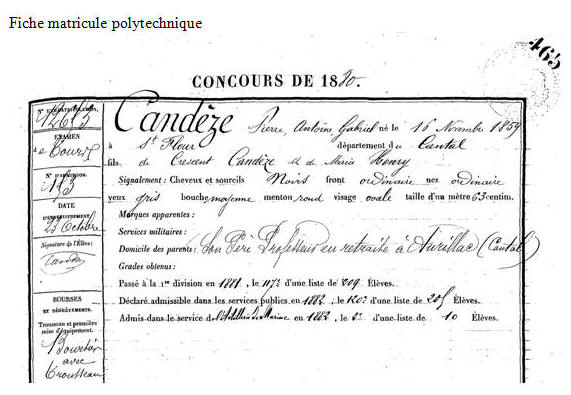 Fiche matricule polytechnique
465
CONCOURS DE 1880.
N° D'IMMATRICULATION.
EXAMEN
de Tours
N° D'ADMISSION.
N° 13
DATE
D'ENREGISTREMENT
23 Octobre
Signature de l'Élève:
Candèze
BOURSES
ET DÉGRÈVEMENTS.
Trousseau et première
mise d'équipement.
Boursier
avec
trousseau
Candèze Pierre, Antoine Gabriel né le 16 Novembre 1859
à St Flour département du Cantal
fils de Crescent Candèze et de Marie Henry
Signalement: Cheveux et sourcils Noirs front ordinaire nez ordinaire
yeux gris bouche moyenne menton rond visage ovale taille d'un mètre 63 centim.
Marques apparentes :
Services militaires :
Domicile des parents: Son Père Professeur en retraite à Aurillac (Cantal)
Grades obtenus:
Passé à la 1re division en 1881, le 117e d'une liste de 209 Élèves.
Déclaré admissible dans les services publics en 1882, le 120e d'une liste de 205 Élèves.
Admis dans le service de l'Artillerie de Marine en 1882, le 2e d'une liste de 10 Élèves.